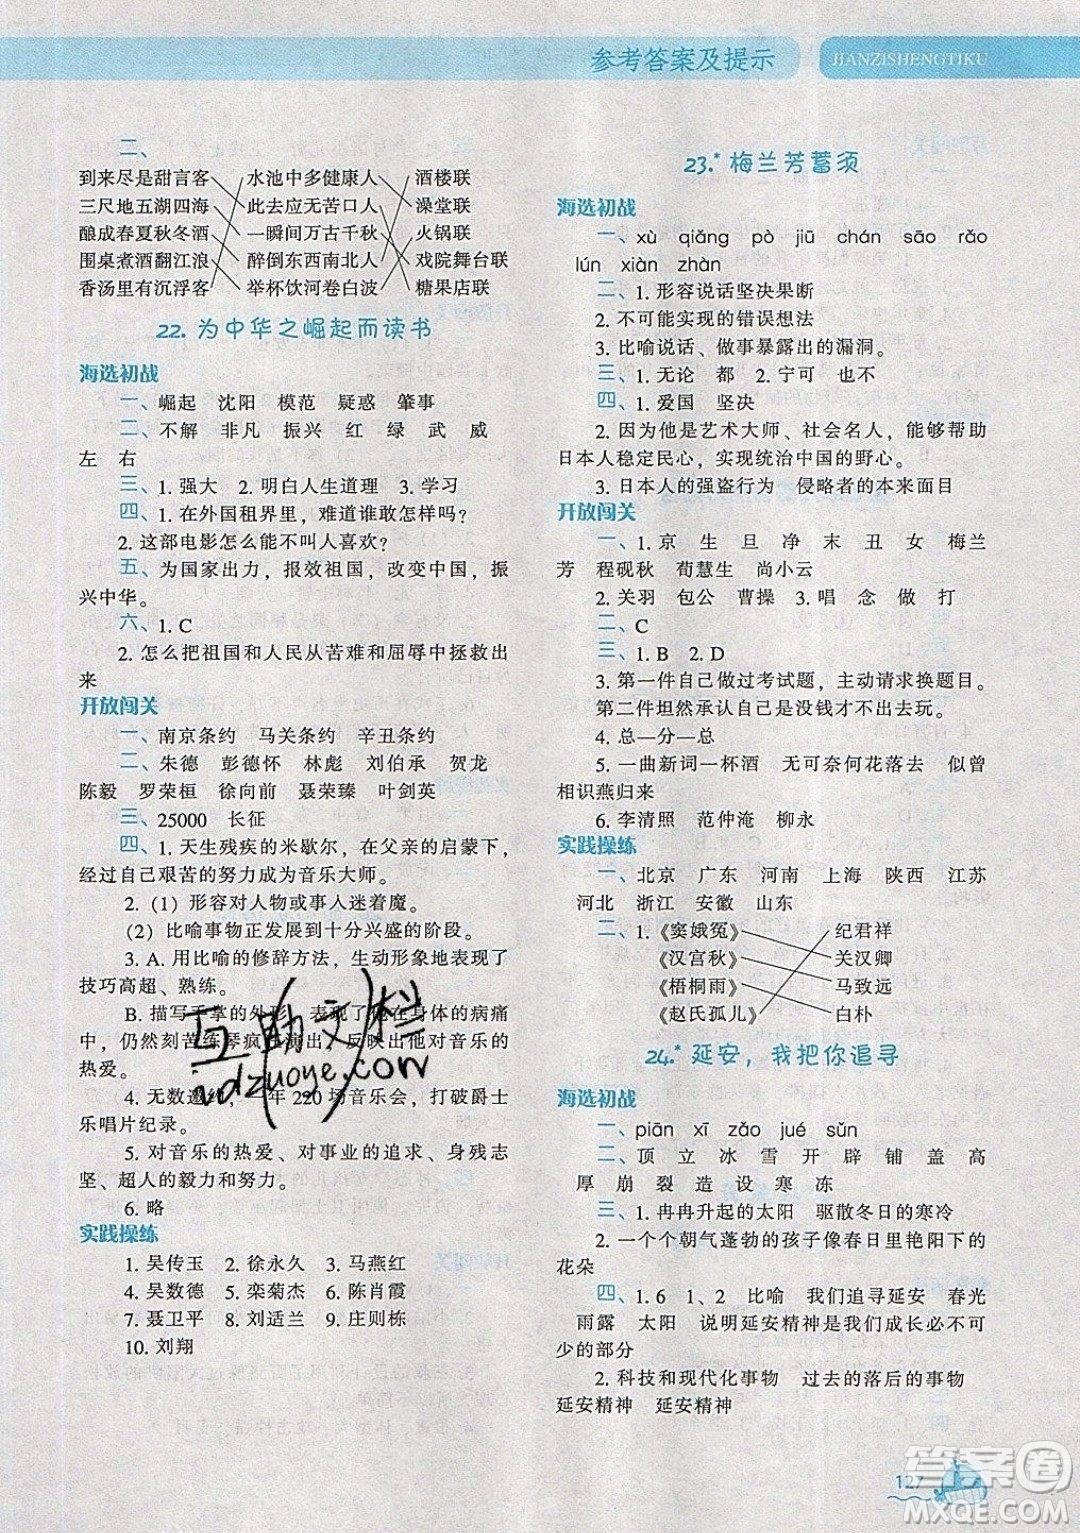 参考答案及提示
JIANZISHENGTIKU
二、
到来尽是甜言客 水池中多健康人 酒楼联
三尺地五湖四海 此去应无苦口人 澡堂联
酿成春夏秋冬酒 一瞬间万古千秋 火锅联
围桌煮酒翻江浪 醉倒东西南北人 戏院舞台联
香汤里有沉浮客 举杯饮河卷白波 糖果店联
22. 为中华之崛起而读书
海选初战
一、崛起 沈阳 模范 疑惑 肇事
二、不解 非凡 振兴 红 绿 武 威
左 右
三、1. 强大 2. 明白人生道理 3. 学习
四、1. 在外国租界里，难道谁敢怎样吗？
2. 这部电影怎么能不叫人喜欢？
五、为国家出力，报效祖国，改变中国，振
兴中华。
六、1. C
2. 怎么把祖国和人民从苦难和屈辱中拯救出
来
开放闯关
一、南京条约 马关条约 辛丑条约
二、朱德 彭德怀 林彪 刘伯承 贺龙
陈毅 罗荣桓 徐向前 聂荣臻 叶剑英
三、25000 长征
四、1. 天生残疾的米歇尔，在父亲的启蒙下，
经过自己艰苦的努力成为音乐大师。
2. (1) 形容对人物或事人迷着魔。
(2) 比喻事物正发展到十分兴盛的阶段。
3. A. 用比喻的修辞方法，生动形象地表现了
技巧高超、熟练。
B. 描写手掌的外形，表现了他在身体的病痛
中，仍然刻苦练琴疯狂演出，反映出他对音乐的
热爱。
4. 无数邀约，一年 220 场音乐会，打破爵士
乐唱片纪录。
5. 对音乐的热爱、对事业的追求、身残志
坚、超人的毅力和努力。
6. 略
实践操练
1. 吴传玉 2. 徐永久 3. 马燕红
4. 吴数德 5. 栾菊杰 6. 陈肖霞
7. 聂卫平 8. 刘适兰 9. 庄则栋
10. 刘翔
23.* 梅兰芳蓄须
海选初战
一、xù qiǎng pò jiū chán sāo rǎo
lún xiàn zhàn
二、1. 形容说话坚决果断
2. 不可能实现的错误想法
3. 比喻说话、做事暴露出的漏洞。
三、1. 无论 都 2. 宁可 也不
四、1. 爱国 坚决
2. 因为他是艺术大师、社会名人，能够帮助
日本人稳定民心，实现统治中国的野心。
3. 日本人的强盗行为 侵略者的本来面目
开放闯关
一、1. 京 生 旦 净 末 丑 女 梅兰
芳 程砚秋 荀慧生 尚小云
2. 关羽 包公 曹操 3. 唱 念 做 打
二、C
三、1. B 2. D
3. 第一件自己做过考试题，主动请求换题目。
第二件坦然承认自己是没钱才不出去玩。
4. 总—分—总
5. 一曲新词一杯酒 无可奈何花落去 似曾
相识燕归来
6. 李清照 范仲淹 柳永
实践操练
一、北京 广东 河南 上海 陕西 江苏
河北 浙江 安徽 山东
二、1.《窦娥冤》 纪君祥
《汉宫秋》 关汉卿
《梧桐雨》 马致远
《赵氏孤儿》 白朴
24.* 延安，我把你追寻
海选初战
一、piān xī zǎo jué sǔn
二、顶 立 冰 雪 开 辟 铺 盖 高
厚 崩 裂 造 设 寒 冻
三、1. 冉冉升起的太阳 驱散冬日的寒冷
2. 一个个朝气蓬勃的孩子像春日里艳阳下的
花朵
四、1. 6 1、2 比喻 我们追寻延安 春光
雨露 太阳 说明延安精神是我们成长必不可
少的部分
2. 科技和现代化事物 过去的落后的事物
延安精神 延安精神
127
互助文档
hdzuoye.com
答案圈
MXQE.COM